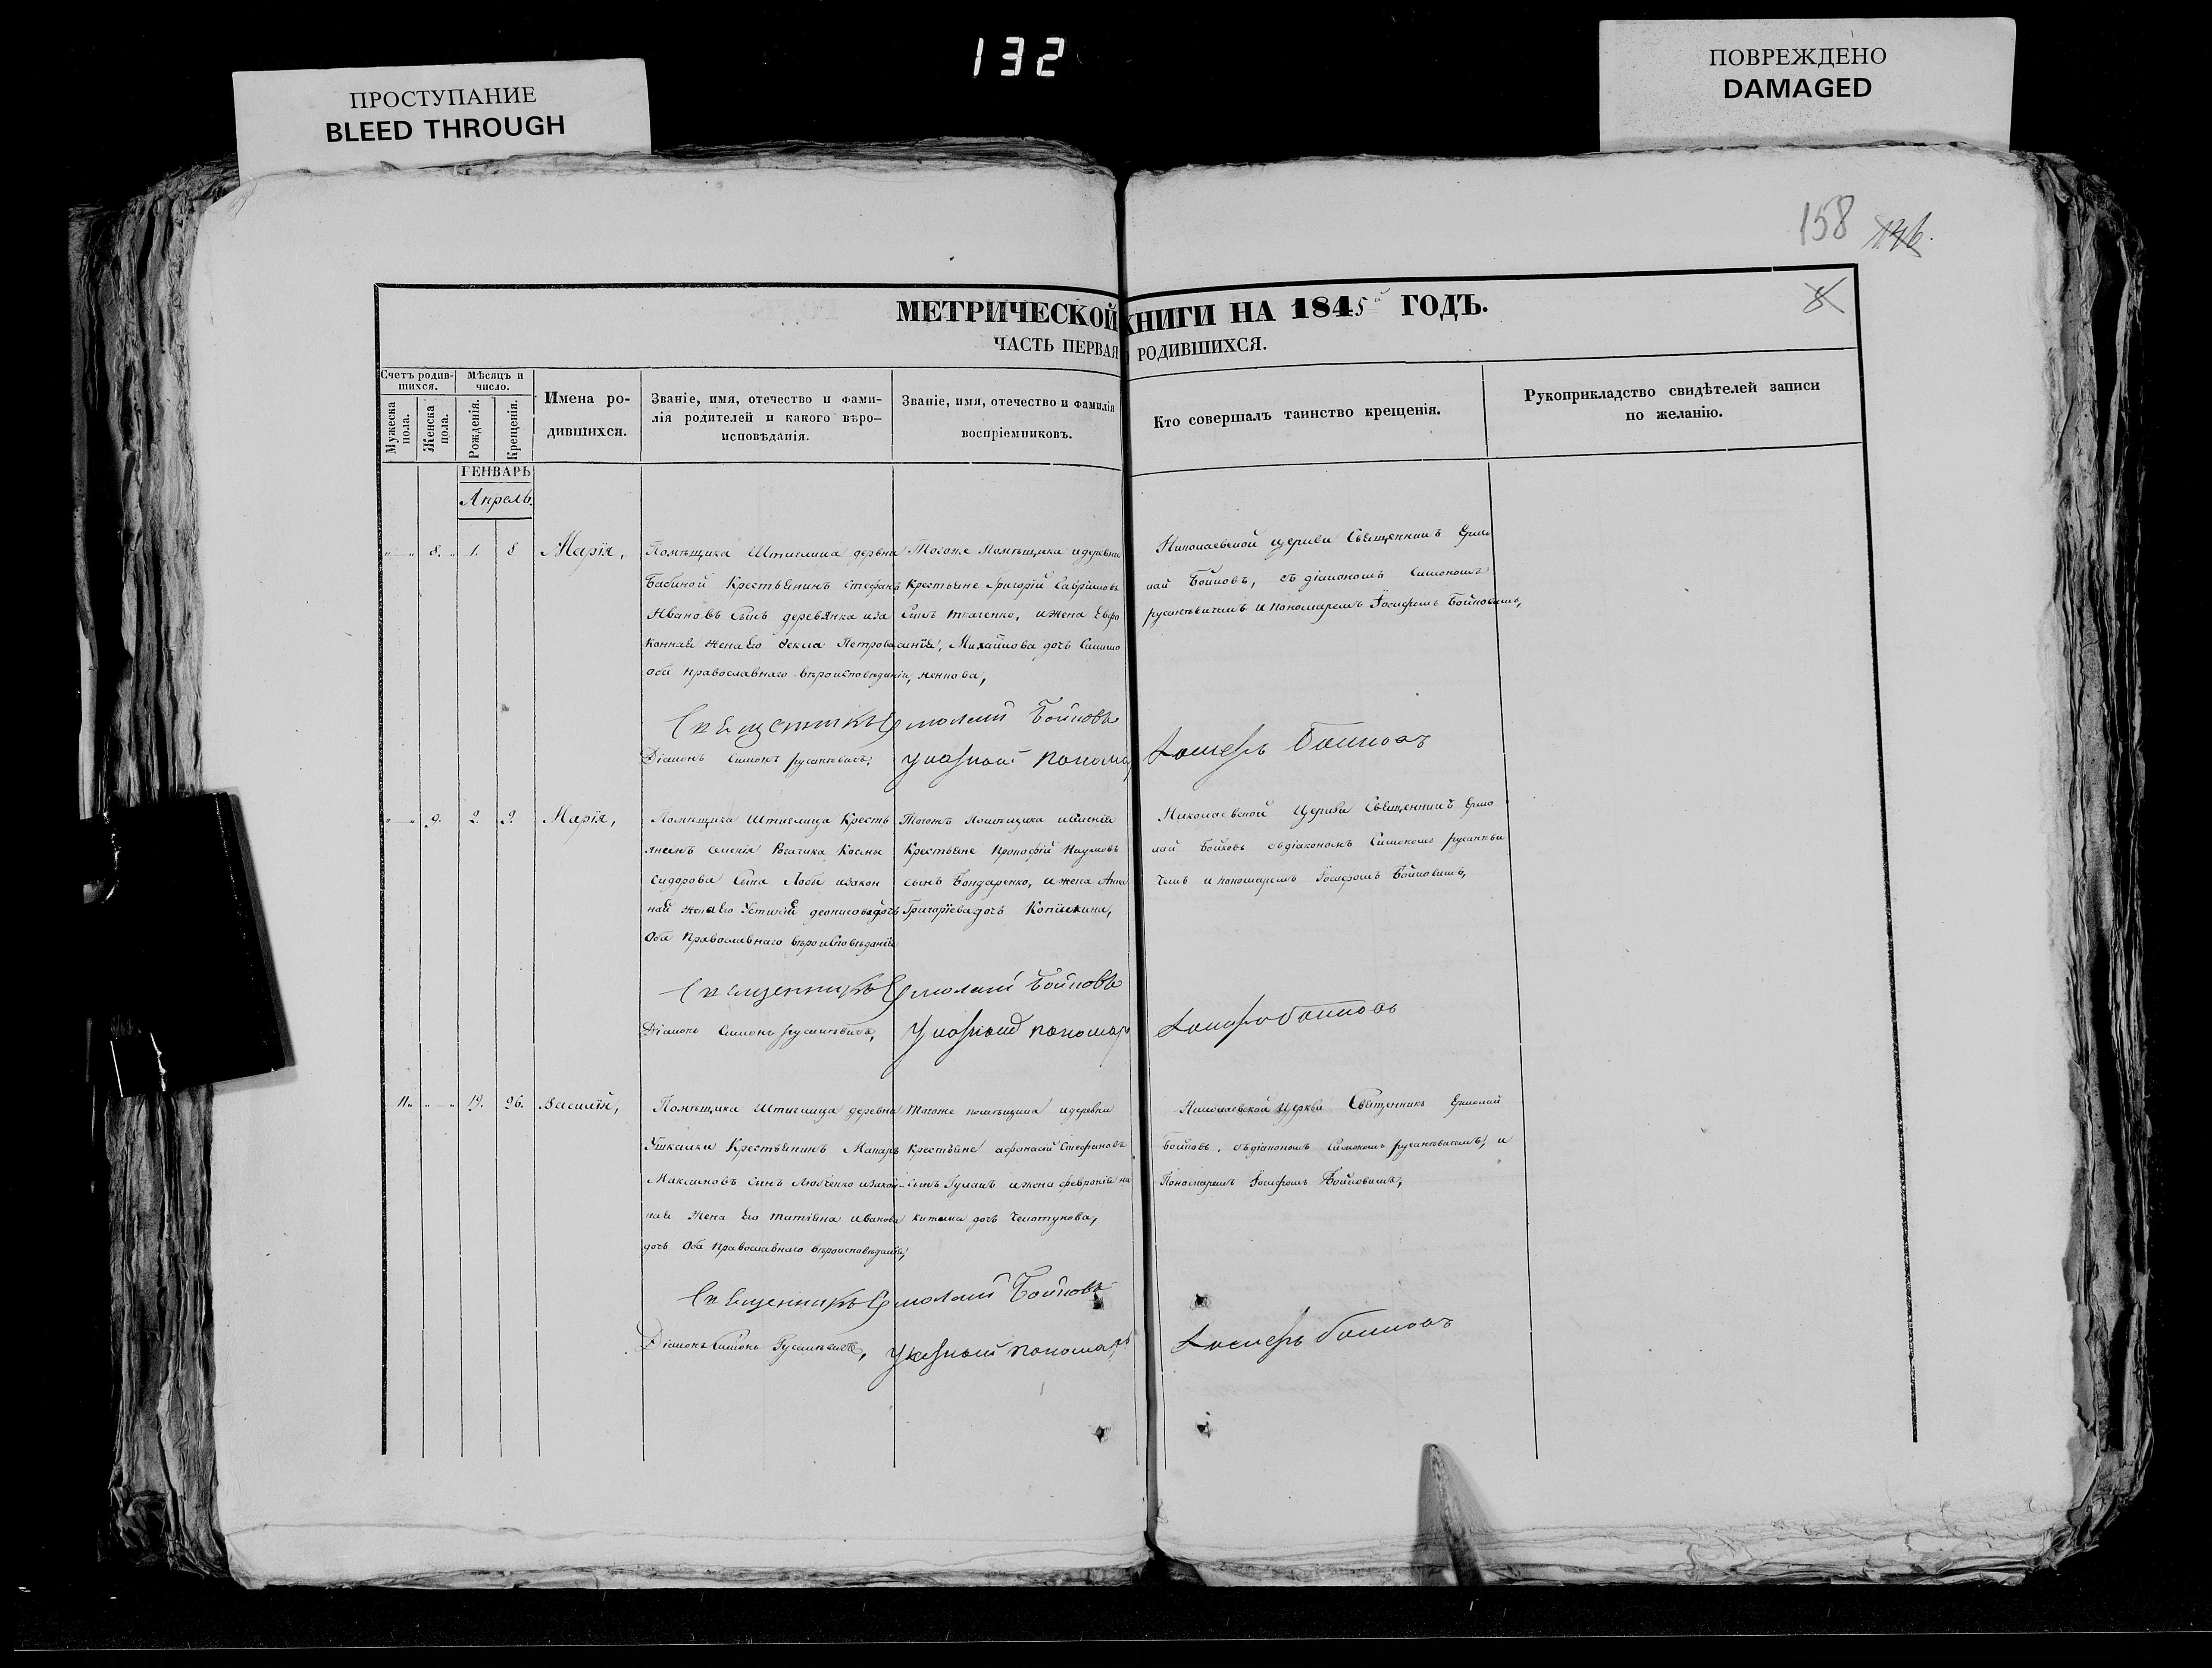 132
ПРОСТУПАНИЕ
BLEED THROUGH
ПОВРЕЖДЕНО
DAMAGED
158
МЕТРИЧЕСКОЙ КНИГИ НА 1845й ГОДЪ.
ЧАСТЬ ПЕРВАЯ РОДИВШИХСЯ.
Счетъ родив-
шихся.
Мѣсяцъ и
число.
Мужеска
пола.
Женска
пола.
Рожденія.
Крещенія.
Имена ро-
дившихся.
Званіе, имя, отечество и фами-
лія родителей и какого вѣро-
исповѣданія.
Званіе, имя, отечество и фамилія
воспріемниковъ.
Кто совершалъ таинство крещенія.
Рукоприкладство свидѣтелей записи
по желанію.
ГЕНВАРЬ
Апрель.
8. 1. 8 Марія,
Помѣщика Штиглица деревни
Бабиной Крестьянинъ Стефанъ
Ивановъ Сынъ деревянка иза
конная жена Его Фекла Петрова
оба православнаго вѣроисповѣданія,
Тогоже Помѣщика идеревни
Крестьяне Григорій Гавріиловъ
Сынъ ткаченко, ижена Евфро
синія, Михайлова дочь
Николаевской церкви Священникъ Ермо
лай Бойковъ, съ діакономъ Симономъ
русаневичемъ и пономаремъ Іосифомъ Бойковымъ,
Священникъ Ермолай Бойковъ
Діаконъ Симонъ русаневичь,
Указной пономарь Іосифъ Бойковъ
9. 2. 9. Марія,
Помѣщика Штиглица Кресть
янинъ селенія Рогачика Космы
Сидорова Сына Лобы изакон
ной жены Его Устиніи деонисова дочь
Оба Православнаго вѣроисповѣданія
Тогожъ Помѣщика иселенія
Крестьяне Прокофій Наумовъ
сынъ Бондаренко, ижена Анна
Григоріева дочь
Николаевской Церкви Священникъ Ермо
лай Бойковъ съдіакономъ Симономъ русаневи
чемъ и пономаремъ Іосифомъ Бойковымъ,
Священникъ Ермолай Бойковъ
Діаконъ Симонъ русаневичь,
Указной пономарь Іосифъ Бойковъ
11. 19. 26. Василій,
Помѣщика Штиглица деревни
Ушкалки Крестьянинъ Макаръ
Максимовъ сынъ Любченко изакон-
ная Жена Его татіяна иванова
дочь Оба Православнаго вѣроисповѣданія,
Тогоже помѣщика идеревни
крестьяне афанасій Стефановъ
сынъ Гулакъ ижена февронія ни
китина дочь
Николаевской Церкви Священникъ Ермолай
Бойковъ, съдіакономъ Симономъ русаневичемъ, и
Пономаремъ Іосифомъ Бойковымъ,
Священникъ Ермолай Бойковъ
Діаконъ Симонъ Русаневичь,
Указной пономарь Іосифъ Бойковъ